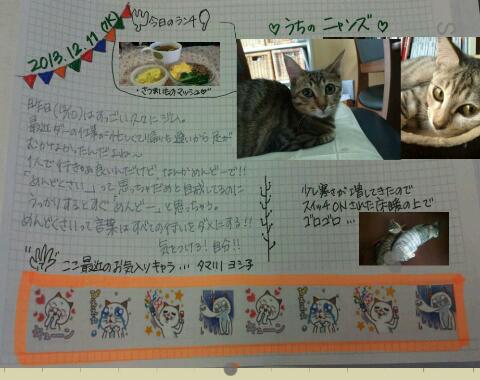 2013.12.11(水)
今日のランチ
・さつまいものマッシュ
♡うちのニャンズ♡
昨日(12/10)はすっごい久々に
最近ダーの仕事が忙しくて帰りも遅いから足が
むかなかったんだよね〜
1人で行きゃあ良いんだけど なんかめんどーで!!
「めんどくさい…」って思っちゃだめと自戒してるのに
うっかりするとすぐ「めんどー」と思っちゃう。
めんどくさいって言葉はすべての行いをダメにする!!
気をつけろ!自分!!
少し寒さが増してきたので
スイッチONされた床暖の上で
ゴロゴロ…
ここ最近のお気入りキャラ… タマ川 ヨシ子
キューン
キューン